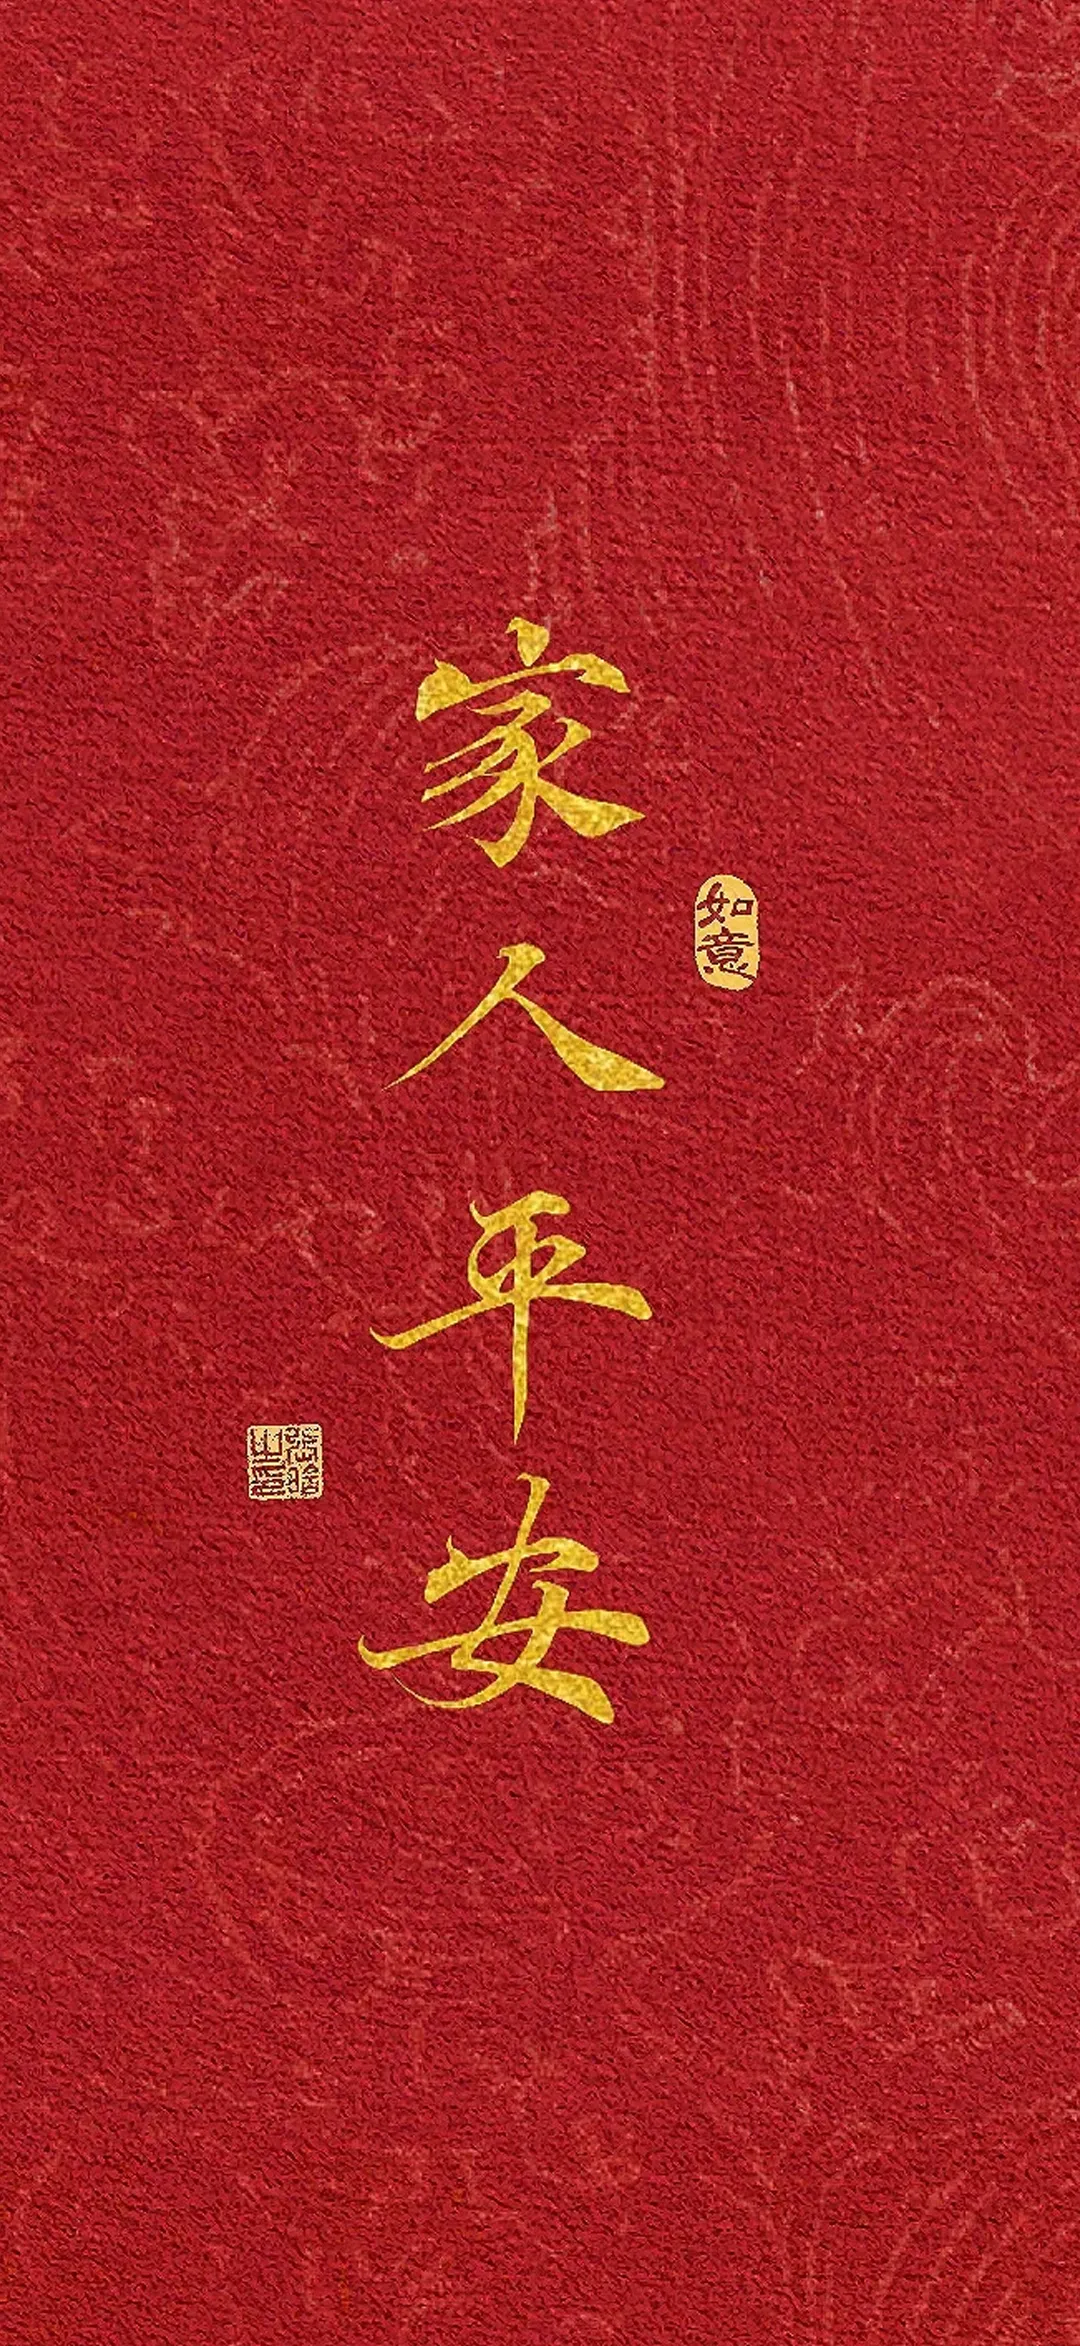 家人平安
如意